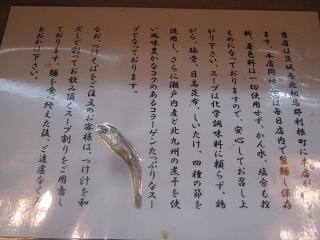 当店は茨城県北相馬郡利根町に本店が
ます。本店同様、麺は毎日店内で製麺し保存
料、着色料は一切使用せず、かん水、塩分を控
えめになっておりますので、安心してお召し上
がり下さい。スープは化学調味料に頼らず、鶏
がら、豚骨、日高昆布、しいたけ、四種の節を
使用し、さらに瀬戸内産と北九州の煮干を使
い風味豊かなコクのあるコラーゲンたっぷりなスー
プとなっております。
なお、つけそばをご注文のお客様は、つけ汁を和
だしで割ってお飲み頂くスープ割りをご用意し
ております。麺を食べ終えた後、ご遠慮なく
をおかけ下さい。